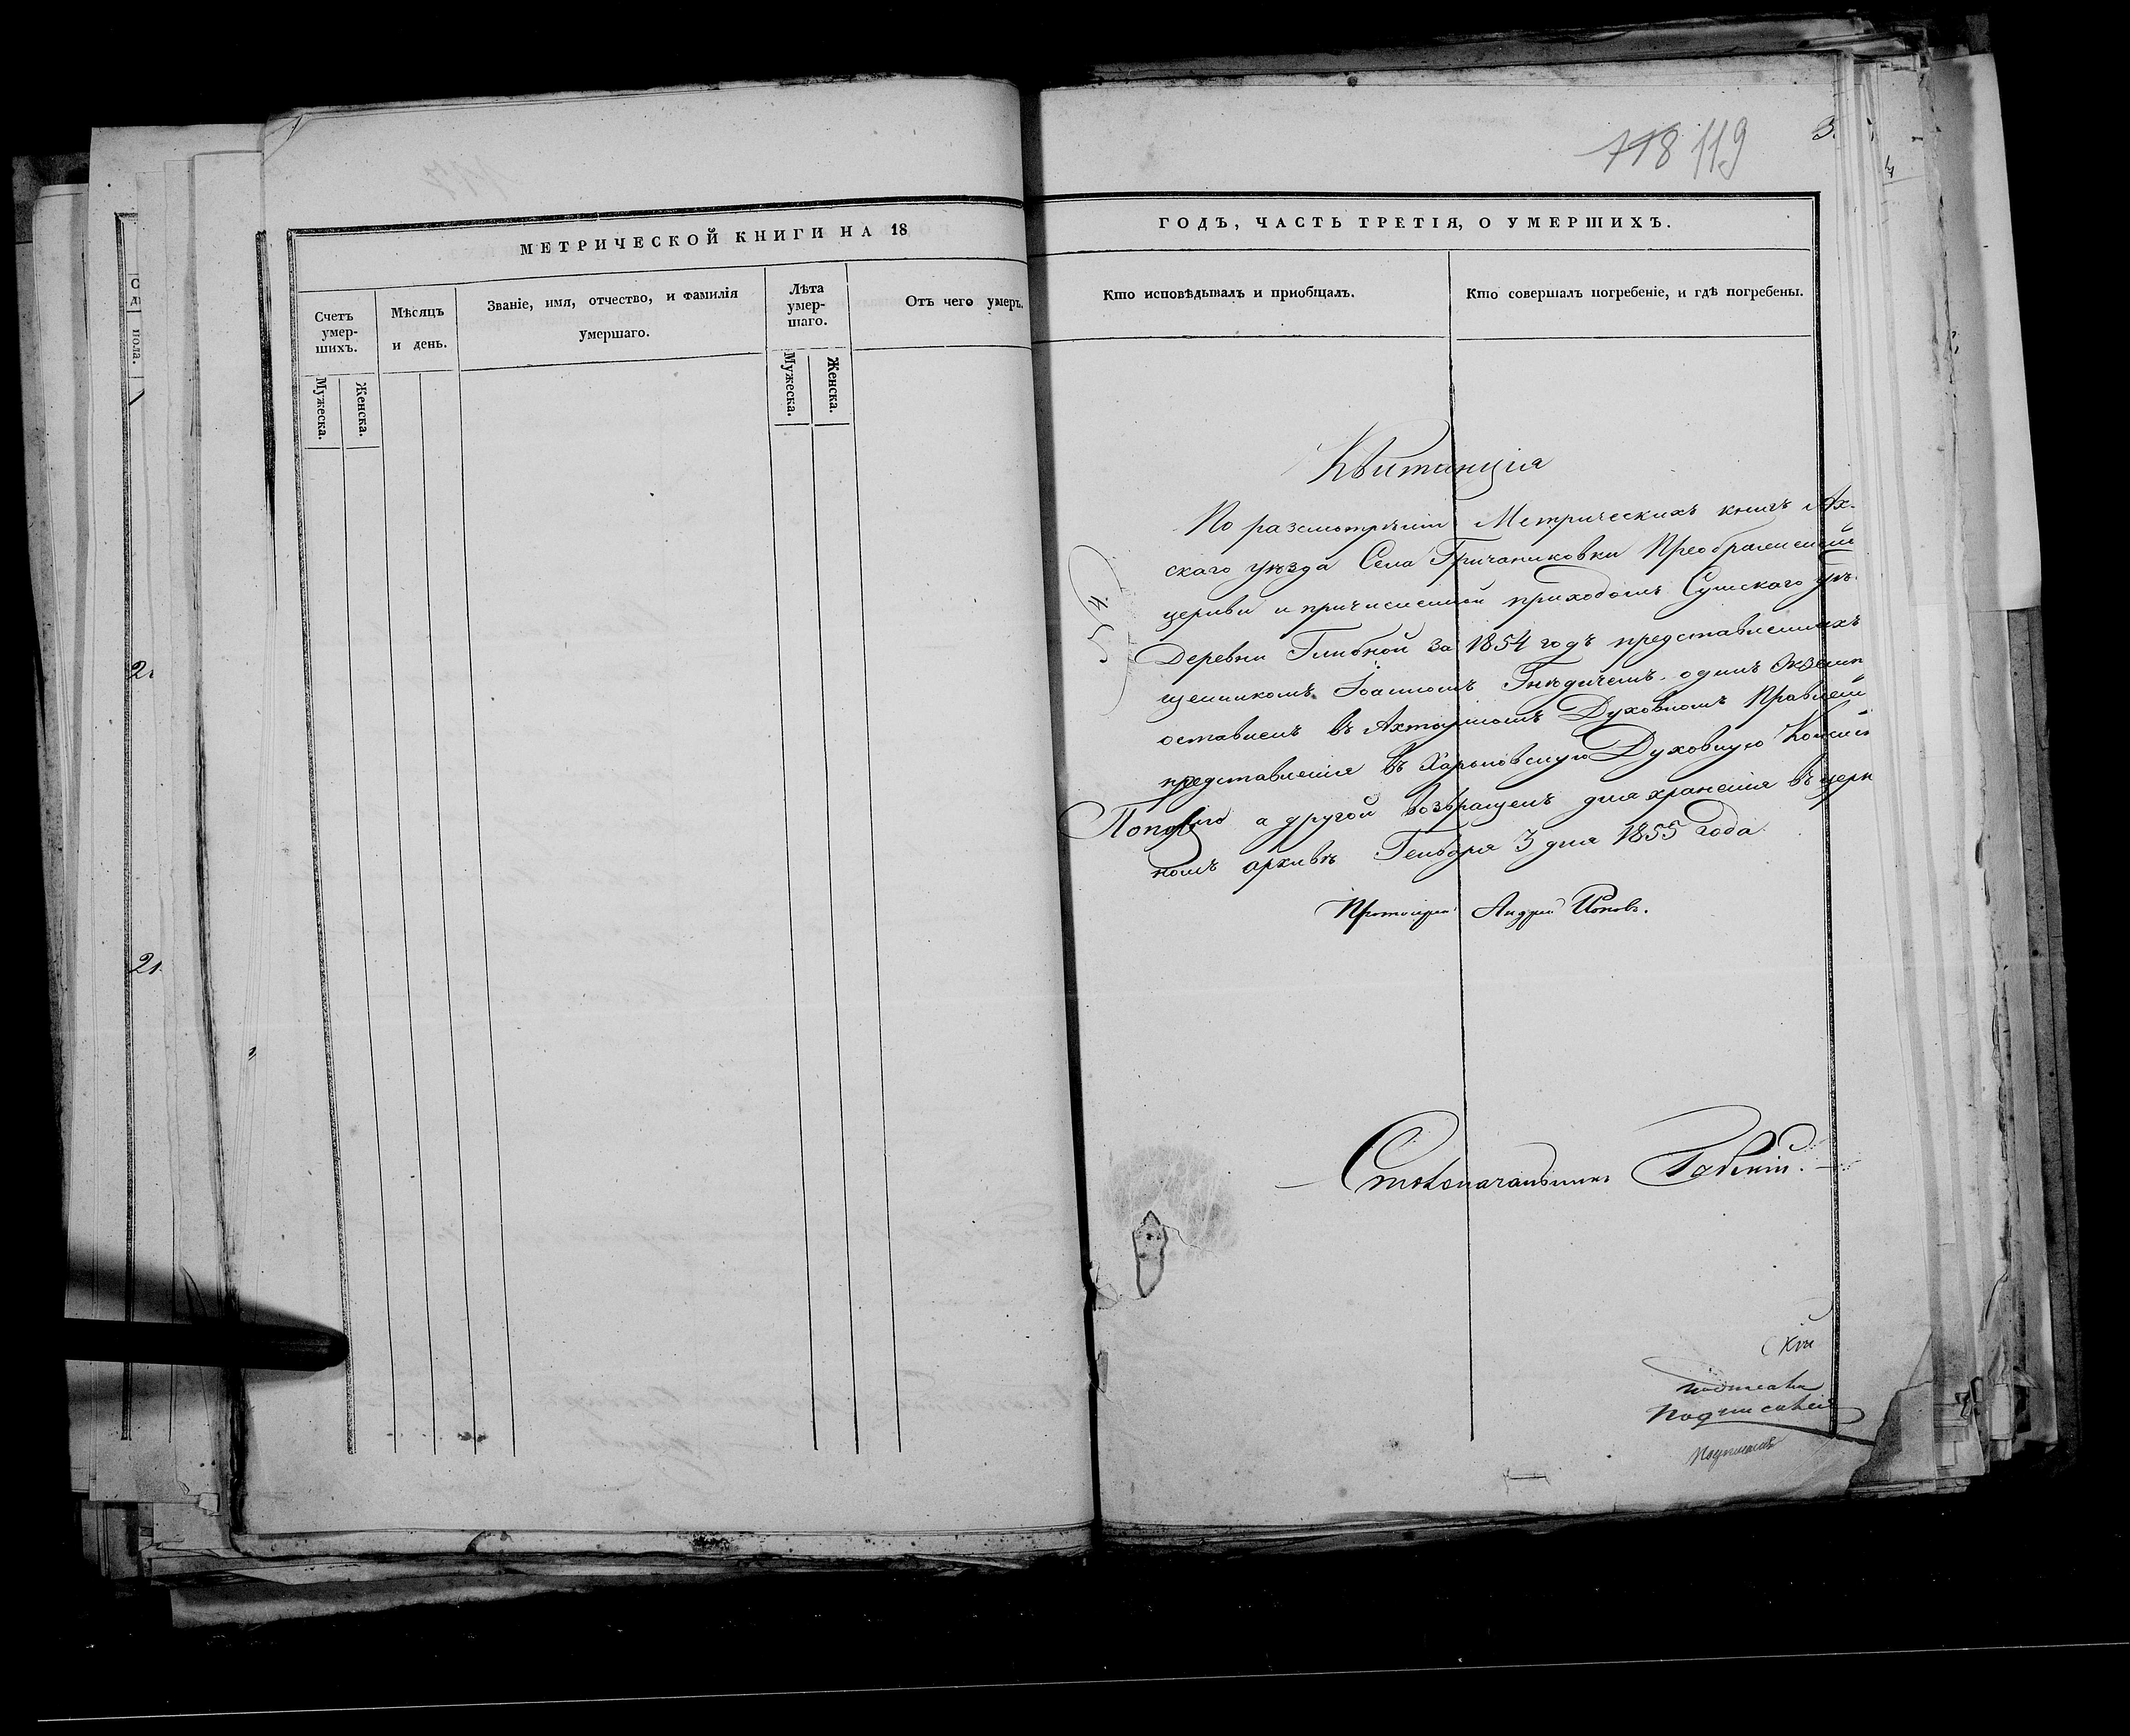 118 119
МЕТРИЧЕСКОЙ КНИГИ НА 18
ГОДЪ, ЧАСТЬ ТРЕТІЯ, О УМЕРШИХЪ.
Счетъ умер-шихъ.
Мужеска.
Женска.
Мѣсяцъ и день.
Званіе, имя, отчество, и фамилія умершаго.
Лѣта умер-шаго.
Мужеска.
Женска.
Отъ чего умеръ.
Кто исповѣдывалъ и пріобщалъ.
Кто совершалъ погребеніе, и гдѣ погребены.
Квитанція
По разсмотрѣніи Метрическихъ книгъ Ах-
скаго уѣзда Села Гричаниковки Преображенской
церкви и причисленной приходомъ Сумскаго уѣ.
Деревни Глибной за 1854 годъ представленныхъ
щенникомъ Іоанномъ Гнѣдичемъ одинъ Экземп
оставленъ въ Ахтырскомъ Духовномъ Правлені
представленія въ Харьковскую Духовную Консис
а другой возвращенъ для хранения въ церк
номъ архивѣ Генваря 3 дня 1855 года.
№ 54
Протоіерей Андрей Поповъ.
Столоначальникъ
2
21